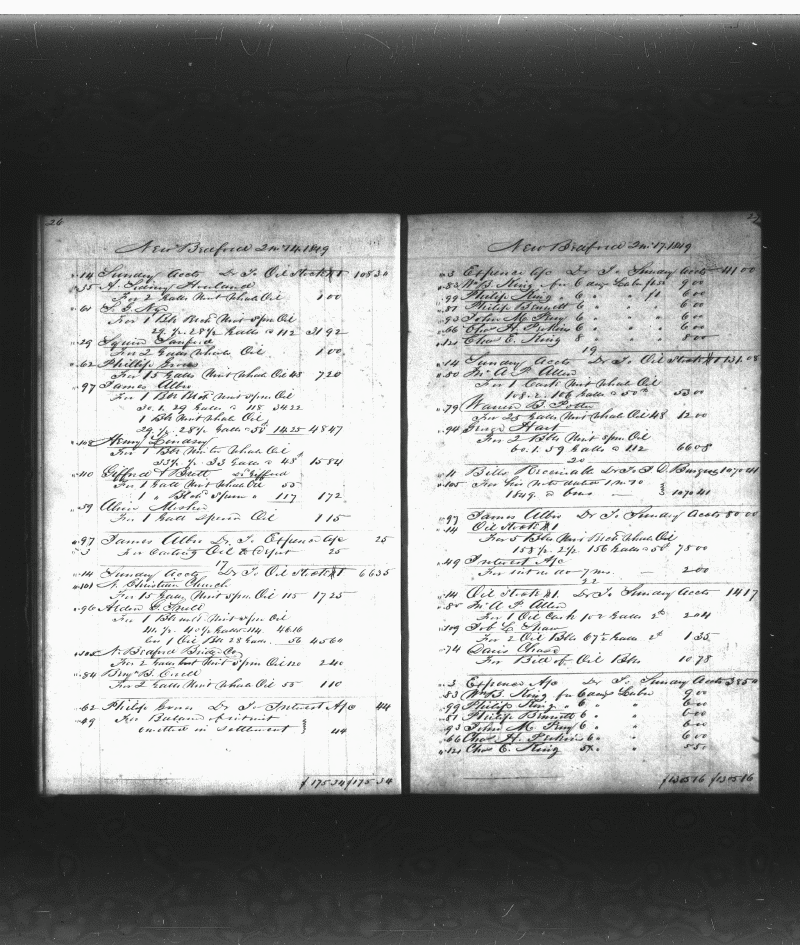 26
New Bedford 2 mo 14. 1849
14 Sundry Accts Dr To Oil Stock #1 108 30
35 A. Sidney Howland
For 2 Galls Wint Whale Oil 1 00
61
For 1 Bbl Blch Wint Spm Oil
29. 1/2. 28 1/2 Galls a 112 31 92
29 Squire Sanford
For 2 Galls Whale Oil 1 00
62 Phillip
For 15 Galls Wint Whale Oil 48 7 20
97 James Allen
For 1 Bbl Blch Wint Spm Oil
30. 1. 29 Galls a 118 34 22
1 Bbl Wint Whale Oil
29. 1/2. 28 1/2 Galls a 50 14 25 48 47
108 Henry Lindsey
For 1 Bbl Winter Whale Oil
33 1/2. 1/2. 33 Galls a 48 15 84
110 Gifford &
For 1 Gall Wint Whale Oil 55
1 " Blchd Sperm " 117 1 72
59
For 1 Gall Sperm Oil 1 15
97 James Allen Dr To Expence A/c 25
3 For Carting Oil to Depot 25
17
14 Sundry Accts Dr To Oil Stock #1 66 35
101 N. Christian Church
For 15 Galls Wint Spm Oil 115 17 25
96 Alden G.
For 1 Bbl Wint Spm Oil
41. 1/2. 40 1/2 Galls 114 46 16
1 Oil Bbl 28 Galls 56 45 60
N. Bedford Bridge Co.
For 2 Galls Wint Spm Oil 120 2 40
84 Benj B.
For 2 Galls Wint Whale Oil 55 1 10
62 Philip Dr To Interest A/c 44
89 For Balance of interest
omitted in Settlement 44
$175 34 $175 34
27
New Bedford 2 mo 17. 1849
3 Expence A/c Dr To Sundry Accts 41 00
83 Wm B. King for 6 days Labor 9 00
99 Philip King " 6 " " 6 00
81 Philip Bennett 6 " " 6 00
93 John M. 6 " " 6 00
66 Chas H. Perkins 6 " " 6 00
121 Chas E. King 8 " " 8 00
19
14 Sundry Accts Dr To Oil Stock #1 131 08
50 Wm A. P. Allen
For 1 Cask Wint Whale Oil
108. 2. 106 Galls a 50 53 00
79 Warren B. Potter
For 25 Galls Wint Whale Oil 48 12 00
94 George Hart
For 2 Bbls Wint Spm Oil
60. 1. 59 Galls a 112 66 08
20
11 Bills Receivable Dr To Burgess 1070 41
105 For his note dated 1 mo 30
1849. a 6 mos 1070 41
97 James Allen Dr To Sundry Accts 80 00
14 Oil Stock #1
For 5 Bbls Wint Blch Whale Oil
158 1/2. 2 1/2 156 Galls a 50 78 00
49 Interest A/c
For int on do 7 ms. 2 00
22
14 Oil Stock #1. Dr To Sundry Accts 14 17
50 Wm A P Allen
For 1 Oil Cask 102 Galls 2 2 04
109 Job L. Shaw
For 2 Oil Bbls 67 1/2 Galls 2 1 35
74 Davis Chase
For Bill of Oil Bbls 10 78
3 Expence A/c Dr To Sundry Accts 38 50
83 Wm B. King for 6 days Labor 9 00
99 Philip King " 6 " " 6 00
81 Philip Bennett 6 " " 6 00
93 John M. 6 " " 6 00
66 Chas H. Perkins 6 " " 6 00
121 Chas E. King 5 1/2 " " 5 50
$1375 16 $1375 16